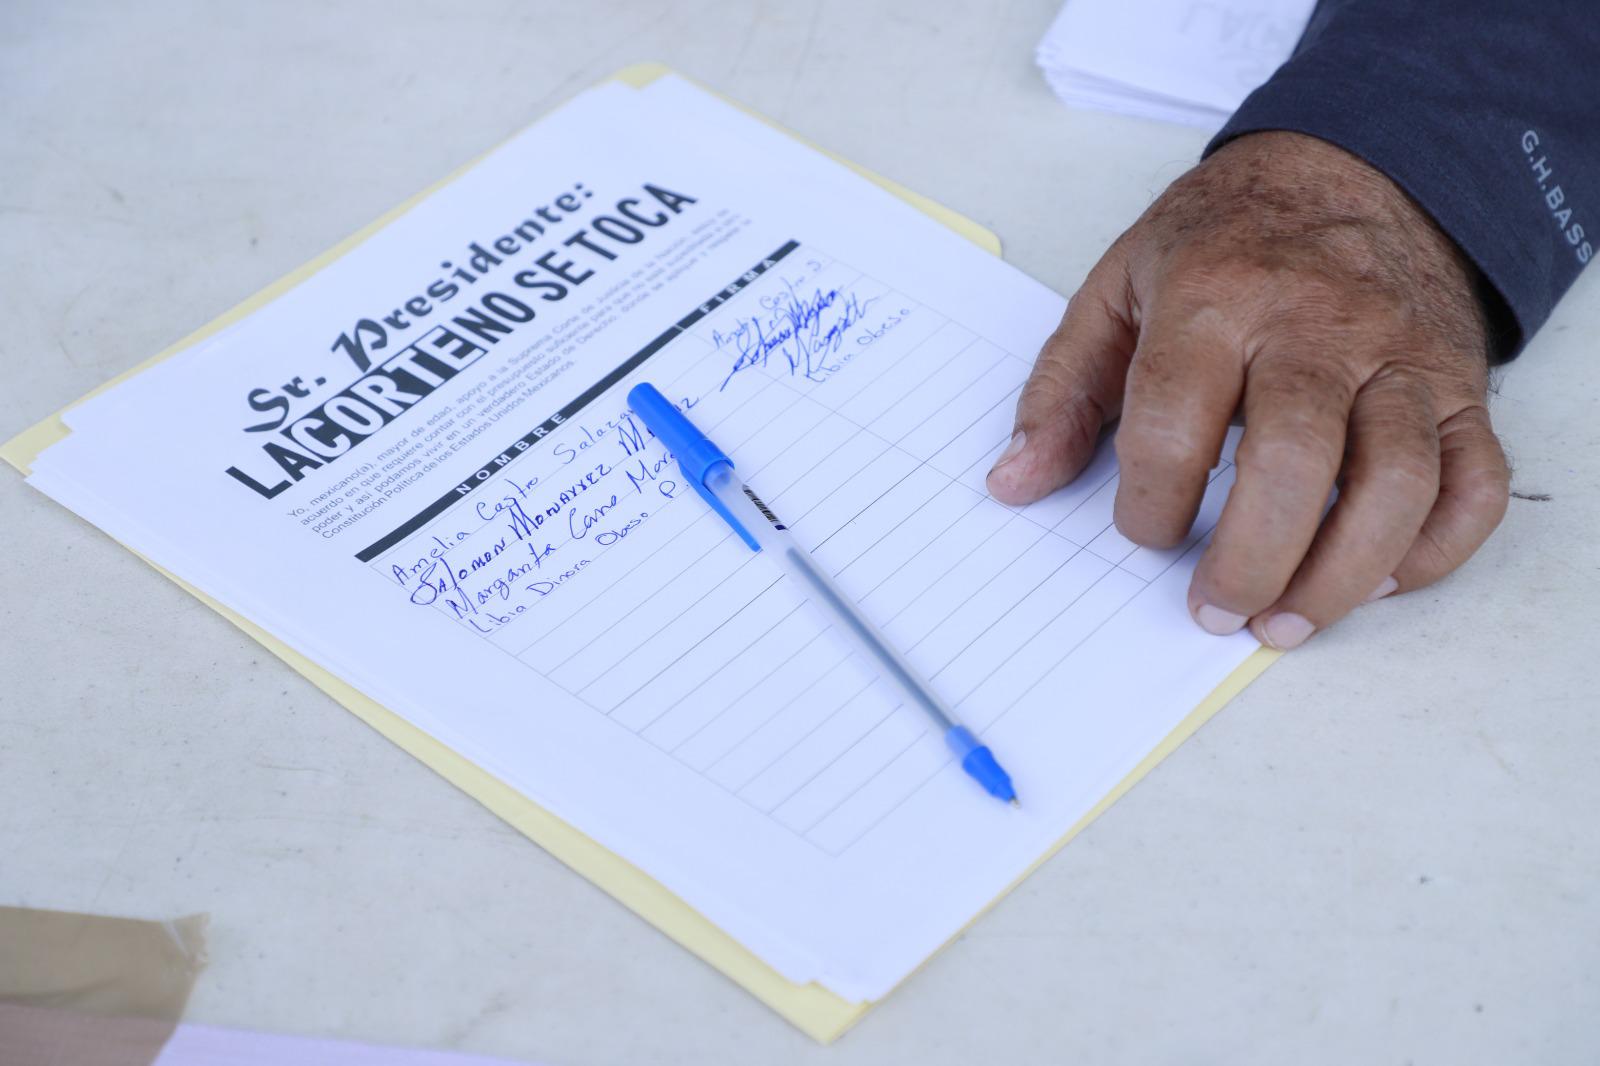 Sr. Presidente:
LA CORTE NO SE TOCA
Yo, mexicano(a), mayor de edad, apoyo a la Suprema Corte de Justicia de la Nación, estoy de
acuerdo en que requiere contar con el presupuesto suficiente para que no esté supeditada a otro
poder y así podamos vivir en un verdadero Estado de Derecho, donde se aplique y respete la
Constitución Política de los Estados Unidos Mexicanos.
NOMBRE FIRMA
Amelia Castro Salazar Castro S.
Salomon Monarrez M
Margarita Cano Mor
Libia Dinora Obeso P. Libia Obeso
G.H.BASS